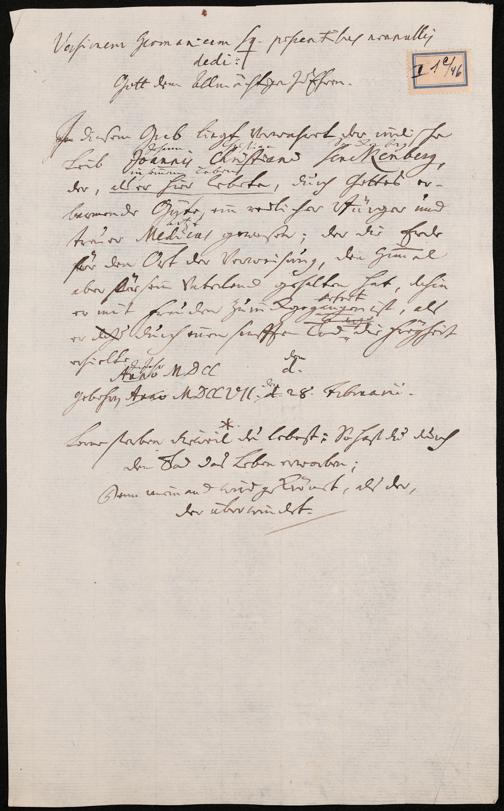 Versionem Germanicam sq. praesentibus nonnullis
dedi:
Gott dem Allmächtigen zu Ehren.
I 1 c/46
In diesem Grab liegt verwahret der
Leib Joannis Christiani Senckenberg,
der, als er hier lebete, durch Gottes er-
barmende Güte, ein redlicher Bürger und
treuer Medicus gewesen; der die Erde
für den Ort der Verweisung, den Himmel
aber für sein Vaterland gehalten hat, dahin
er mit Freuden gegangen ist, als
er durch einen sanfften Tod die Freyheit
erhielte
Anno MDCC
d.
gebohren Anno MDCCVII. d. 28. Februarii.
*
Lerne sterben dieweil du lebest: So hast du durch
den Tod das Leben erworben;
Denn niemand wird gekrönet, als der,
der überwindet.